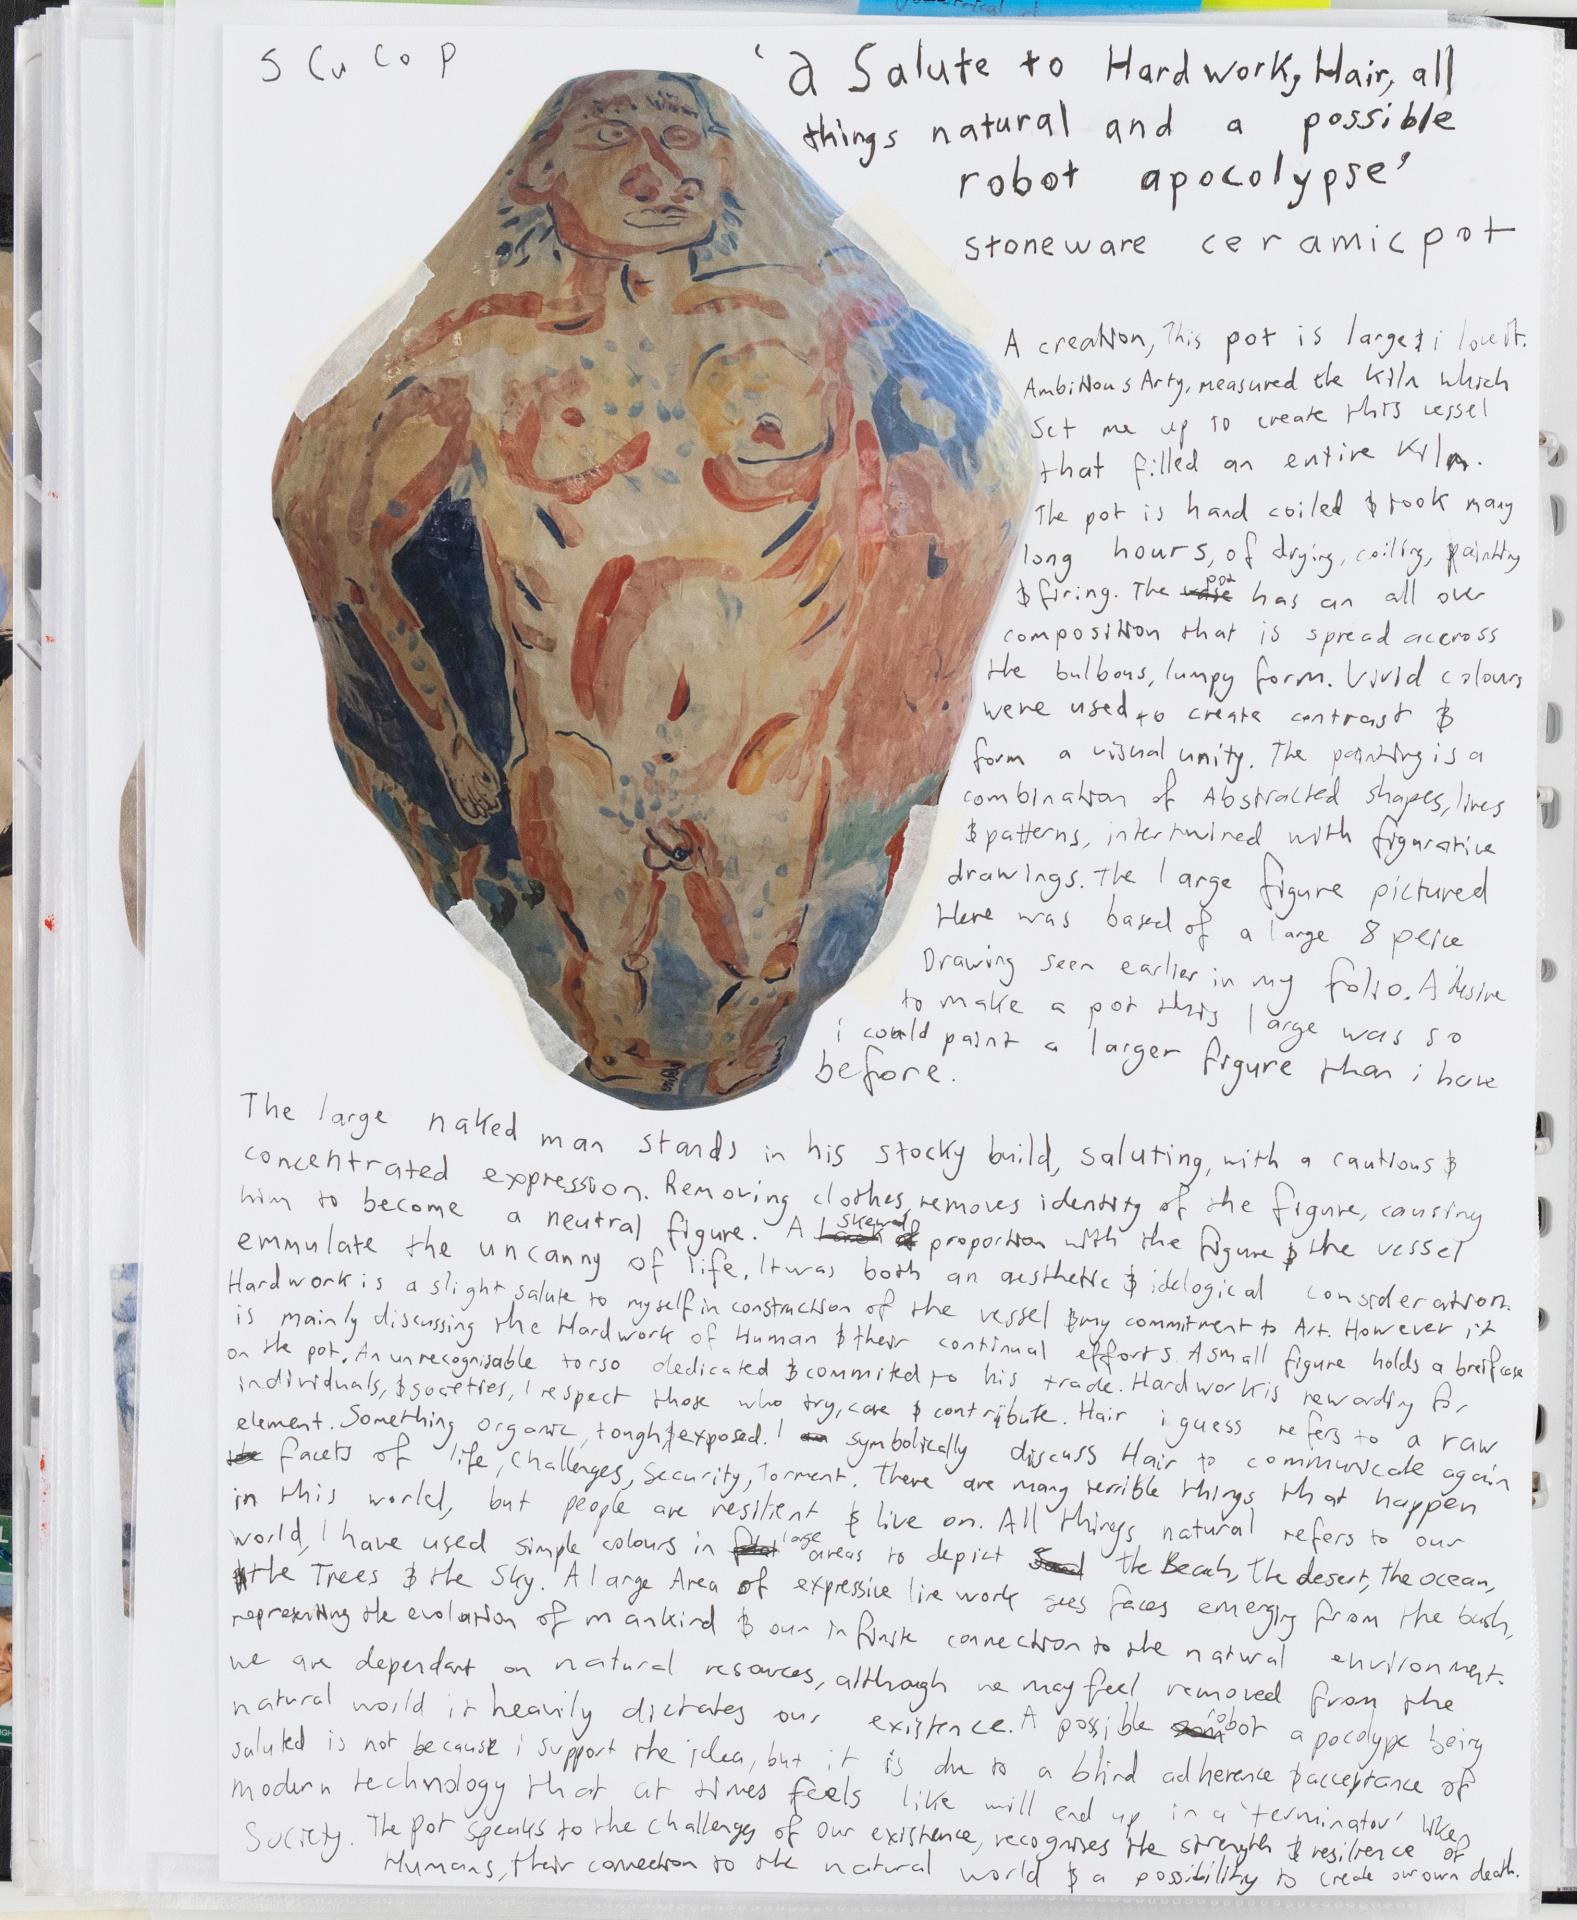 S Cu Co P
'a Salute to Hardwork, Hair, all
things natural and a possible
robot apocolypse'
stoneware ceramic pot
A creation, This pot is large & i love it.
Ambitious Arty, measured the Kiln which
Set me up to create this vessel
that filled an entire Kiln.
The pot is hand coiled & took many
long hours, of drying, coiling, painting
& firing. The pot has an all over
composition that is spread accross
the bulbous, lumpy form. Vivid colours
were used to create contrast &
form a visual unity. The painting is a
combination of Abstracted shapes, lines
& patterns, intertwined with figurative
drawings. The large figure pictured
Here was based of a large 8 peice
Drawing seen earlier in my folio. A desire
to make a pot this large was so
i could paint a larger figure than i have
before.
The large naked man stands in his stocky build, saluting, with a cautious &
concentrated expression. Removing clothes, removes identity of the figure, causing
him to become a neutral figure. A skewed proportion with the figure & the vessel
emmulate the uncanny of life. It was both an aesthetic & idelogical consideration.
Hardwork is a slight salute to myself in construction of the vessel & my commitment to Art. However it
is mainly discussing the Hardwork of Human & their continual efforts. A small figure holds a breifcase
on the pot. An unrecognisable torso dedicated & commited to his trade. Hardwork is rewarding for
individuals, & societies, I respect those who try, care & contribute. Hair i guess refers to a raw
element. Something organic, tough & exposed. I symbolically discuss Hair to communicate again
facets of life, challenges, security, Torment. There are many terrible things that happen
in this world, but people are resilient & live on. All things natural refers to our
world, I have used simple colours in large areas to depict the Beach, The desert, The ocean,
& the Trees & the Sky. A large Area of expressive line work sees faces emerging from the bush,
representing the evolution of mankind & our infinite connection to the natural environment.
we are dependant on natural resources, although we may feel removed from the
natural world it heavily dictates our existence. A possible robot apocolypse being
saluted is not because i support the idea, but it is due to a blind adherence & acceptance of
modern technology that at times feels like will end up in a 'terminator' like
Society. The pot speaks to the challenges of our existence, recognises the strength & resilience of
Humans, their connection to the natural world & a possibility to create our own death.